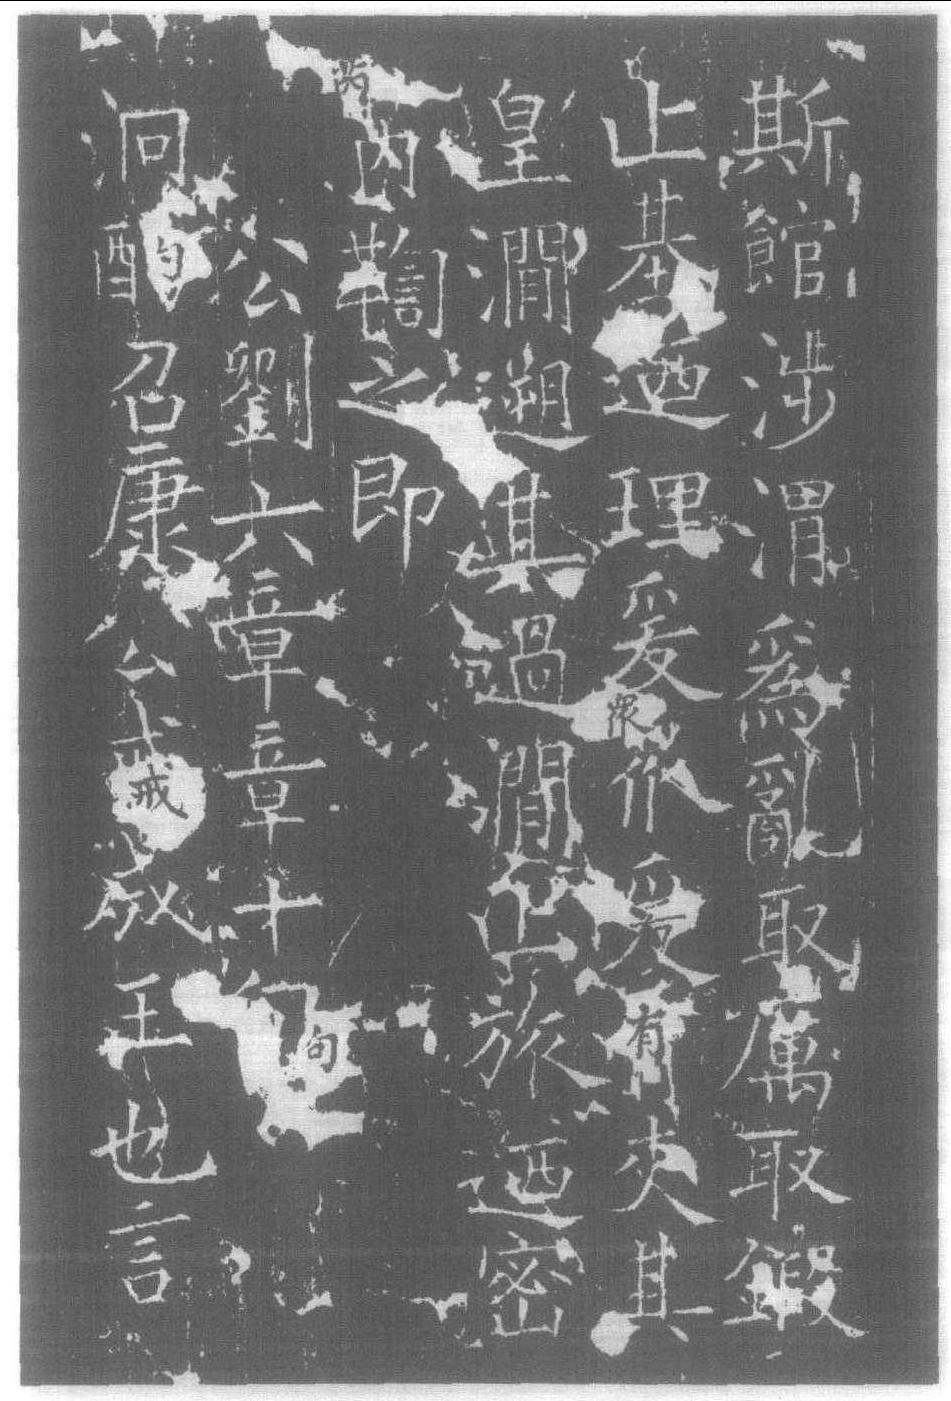 斯館涉渭爲亂取厲取鍛
止基迺理爰眾爰有夾其
皇澗遡其過澗止旅迺密
芮鞫之即
公劉六章章十句
泂酌召康公戒成王也言